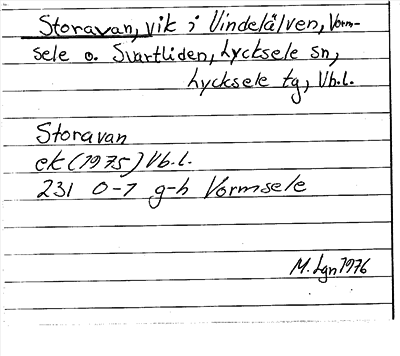 Storavan, vik i Vindelälven, Vorm-
sele o. Svartliden, Lycksele sn,
Lycksele tg, Vb.l.
Storavan
ek (1975) Vb.l.
231 0-1 g-h Vormsele
M. Lgn 1976